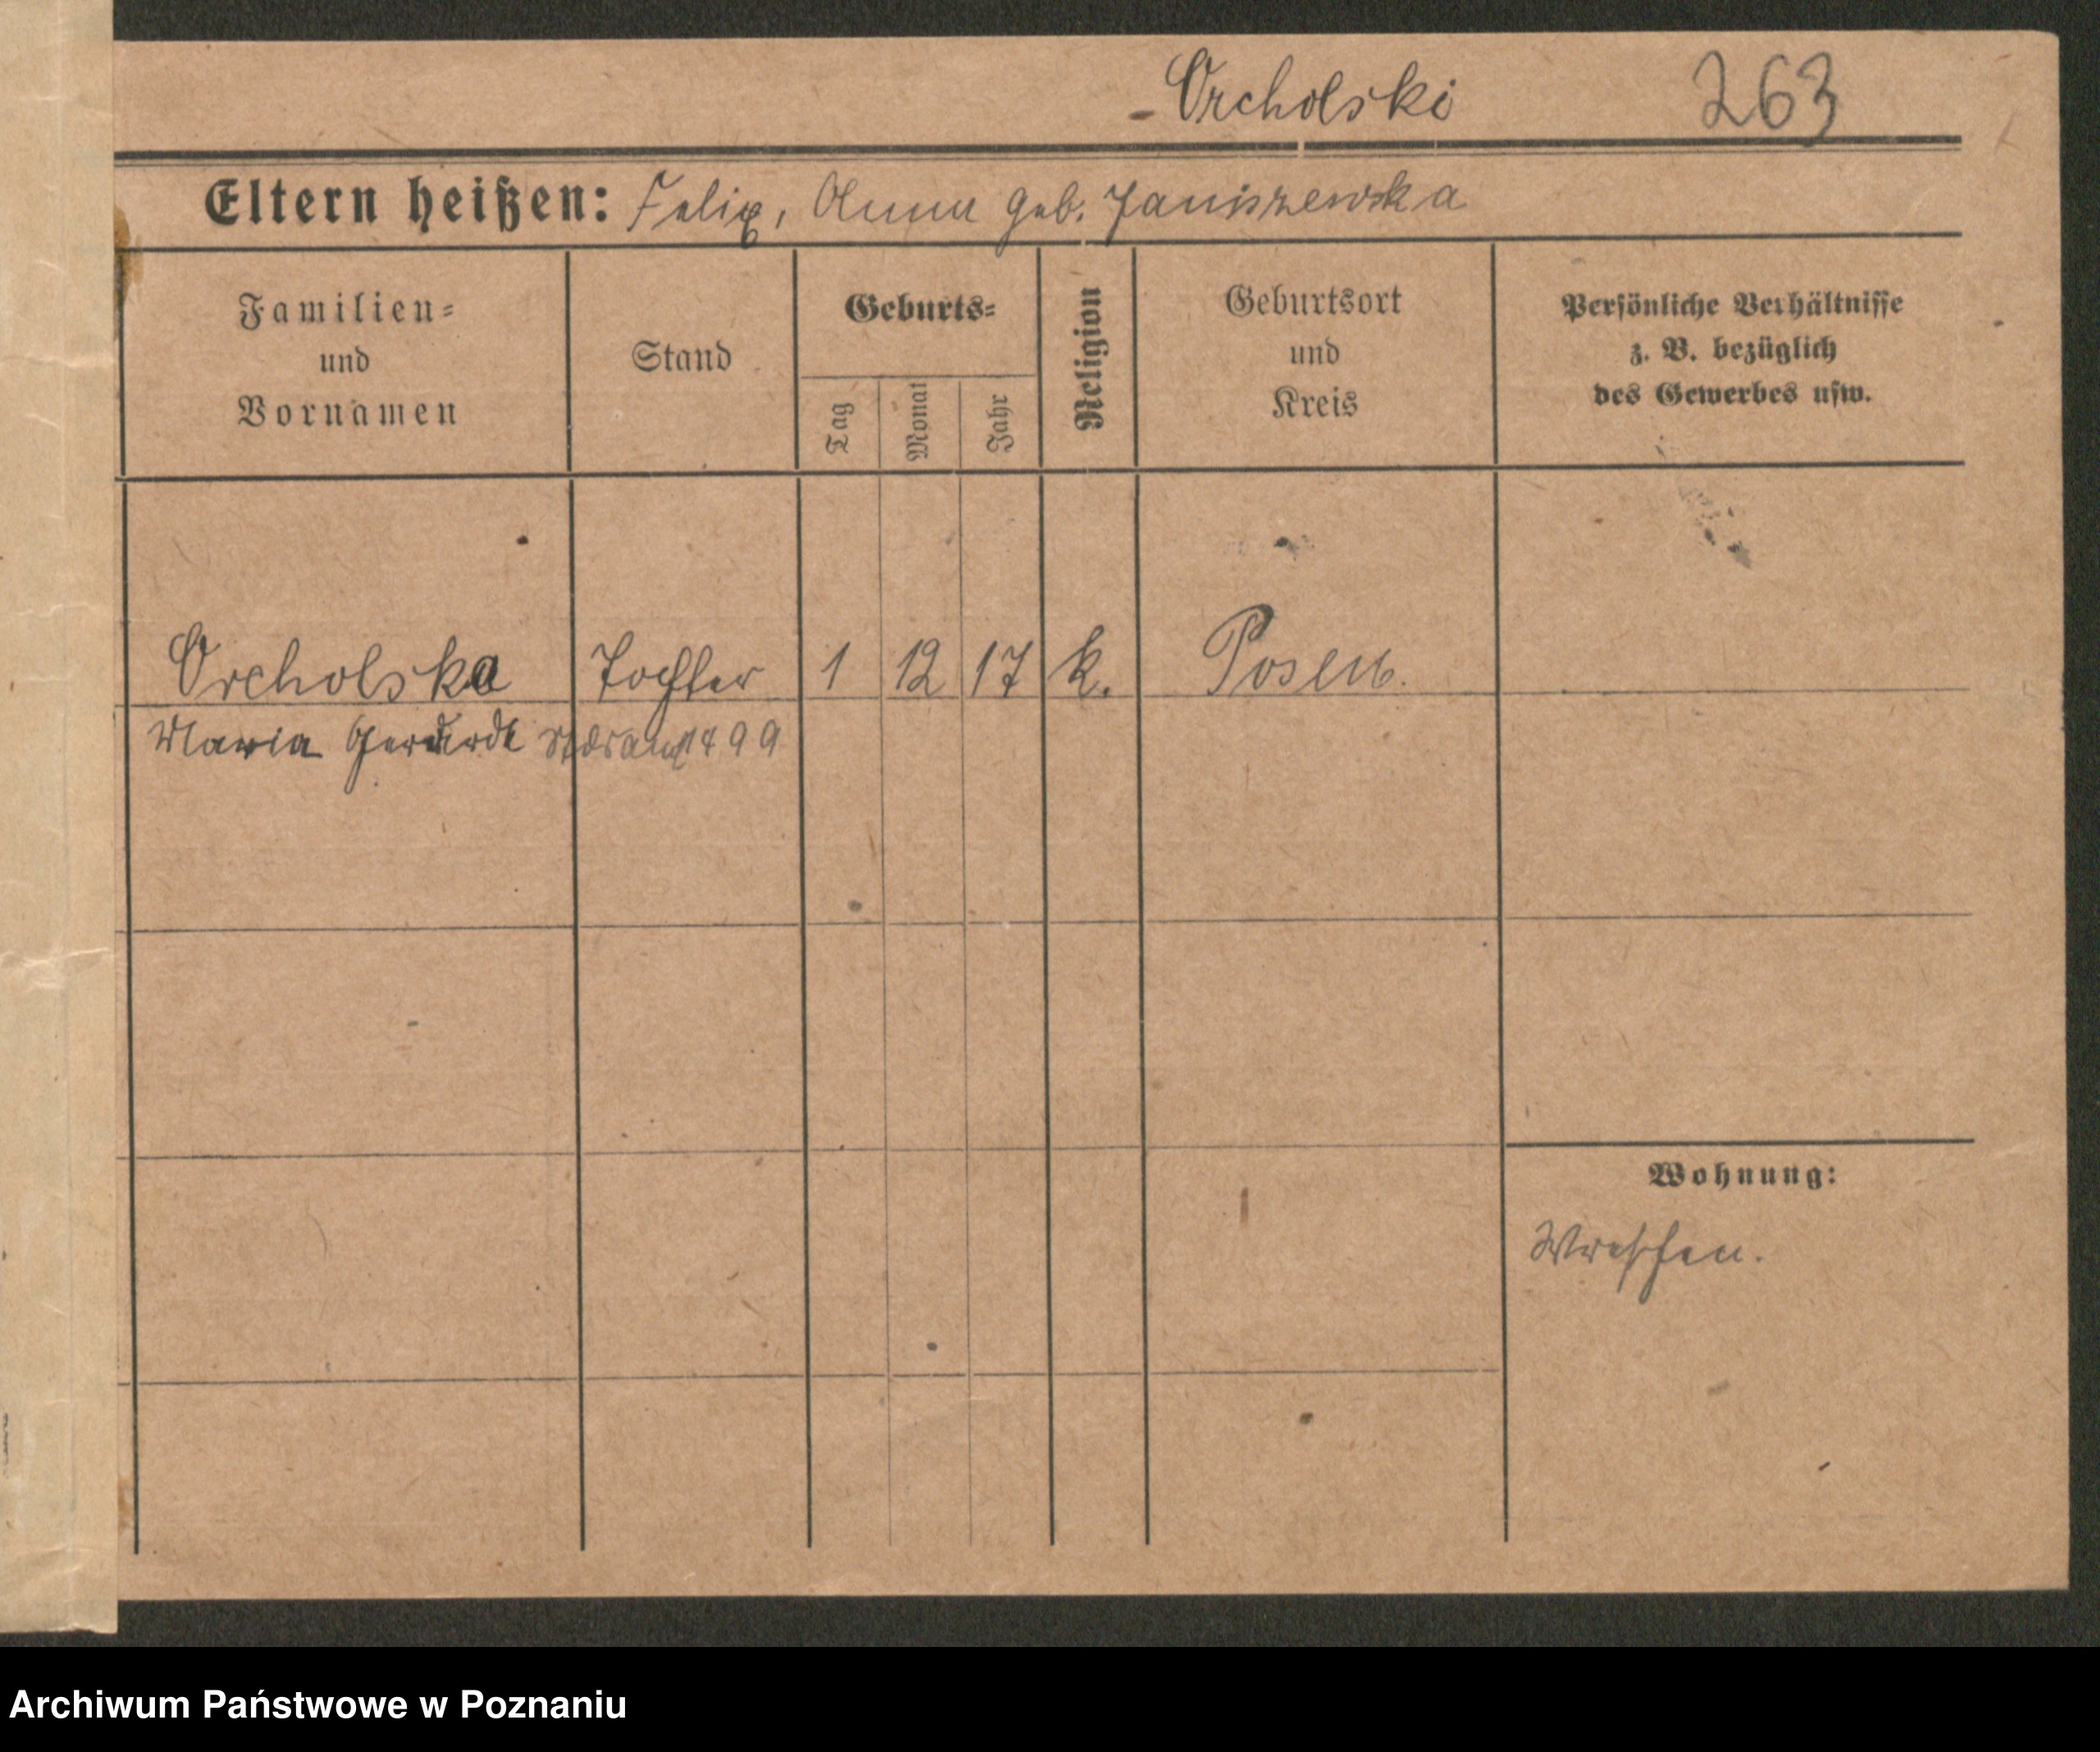 Orcholski 263
Eltern heißen: Felix, Anna geb. Janiszewska
Familien=
und
Vornamen
Stand
Geburts=
Tag
Monat
Jahr
Religion
Geburtsort
und
Kreis
Persönliche Verhältnisse
z. B. bezüglich
des Gewerbes usw.
Orcholska Tochter 1 12 17 k. Posen.
Maria
Wohnung:
Wreschen.
Archiwum Państwowe w Poznaniu